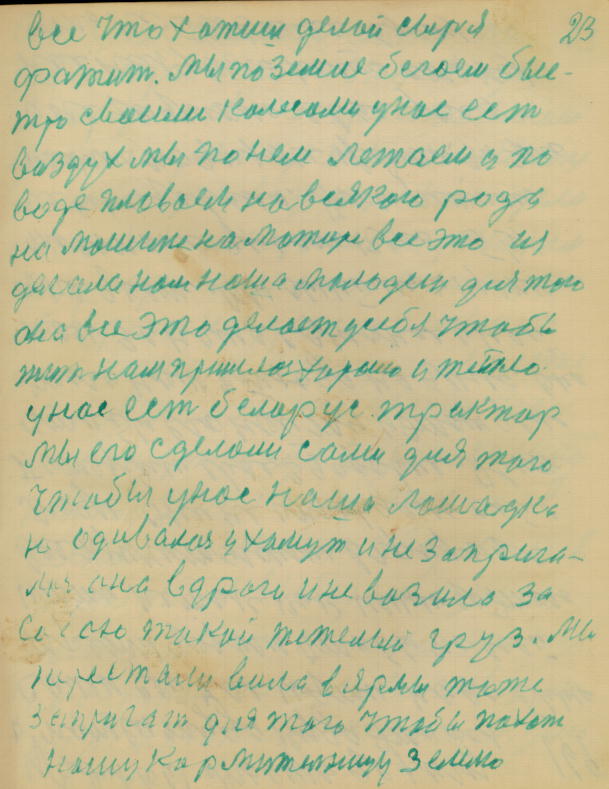 все что хотиш делай сырся 23
фатит. Мы поземле бегоем быс-
тро своими колесами унас ест
воздух мы понем летаем и по
воде пловаем навсякого роду
на машине намоторе все это из
делала нам наша молодеш для того
она все это делает усебя чтобы
жит нам пришлос хорошо и тепло
унас ест беларус трактор
мы его сделали сами для того
чтобы унас наша лошадка
н одивалас ухомут и не запрега-
лас она вдроги и не возила за
собою такой тежелый груз. Мы
перестали вила вярмы тоже
запрягат для того чтобы пахат
нашу кармителницу землю